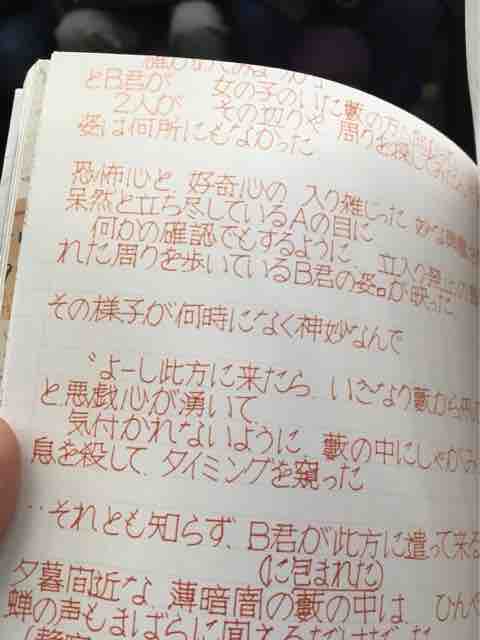 とB君が 女の子のいた藪の方から
2人が その辺りや 周りを探しても
姿は何所にもなかった
恐怖心と 好奇心の 入り雑じった 妙な
呆然と立ち尽しているAの目に
何かの確認でもするように 立入り禁止の
れた周りを歩いているB君の姿が映った
その様子が何時になく神妙なんで
〝よーし此方に来たら、いきなり藪から
と悪戯心が湧いて
気付かれないように、藪の中にしゃがみ
息を殺して、タイミングを窺った
‥それとも知らず、B君が此方に遣って来る
(に包まれた)
夕暮間近な、薄暗闇の藪の中は、ひんや
蝉の声もまばらに聞こえる